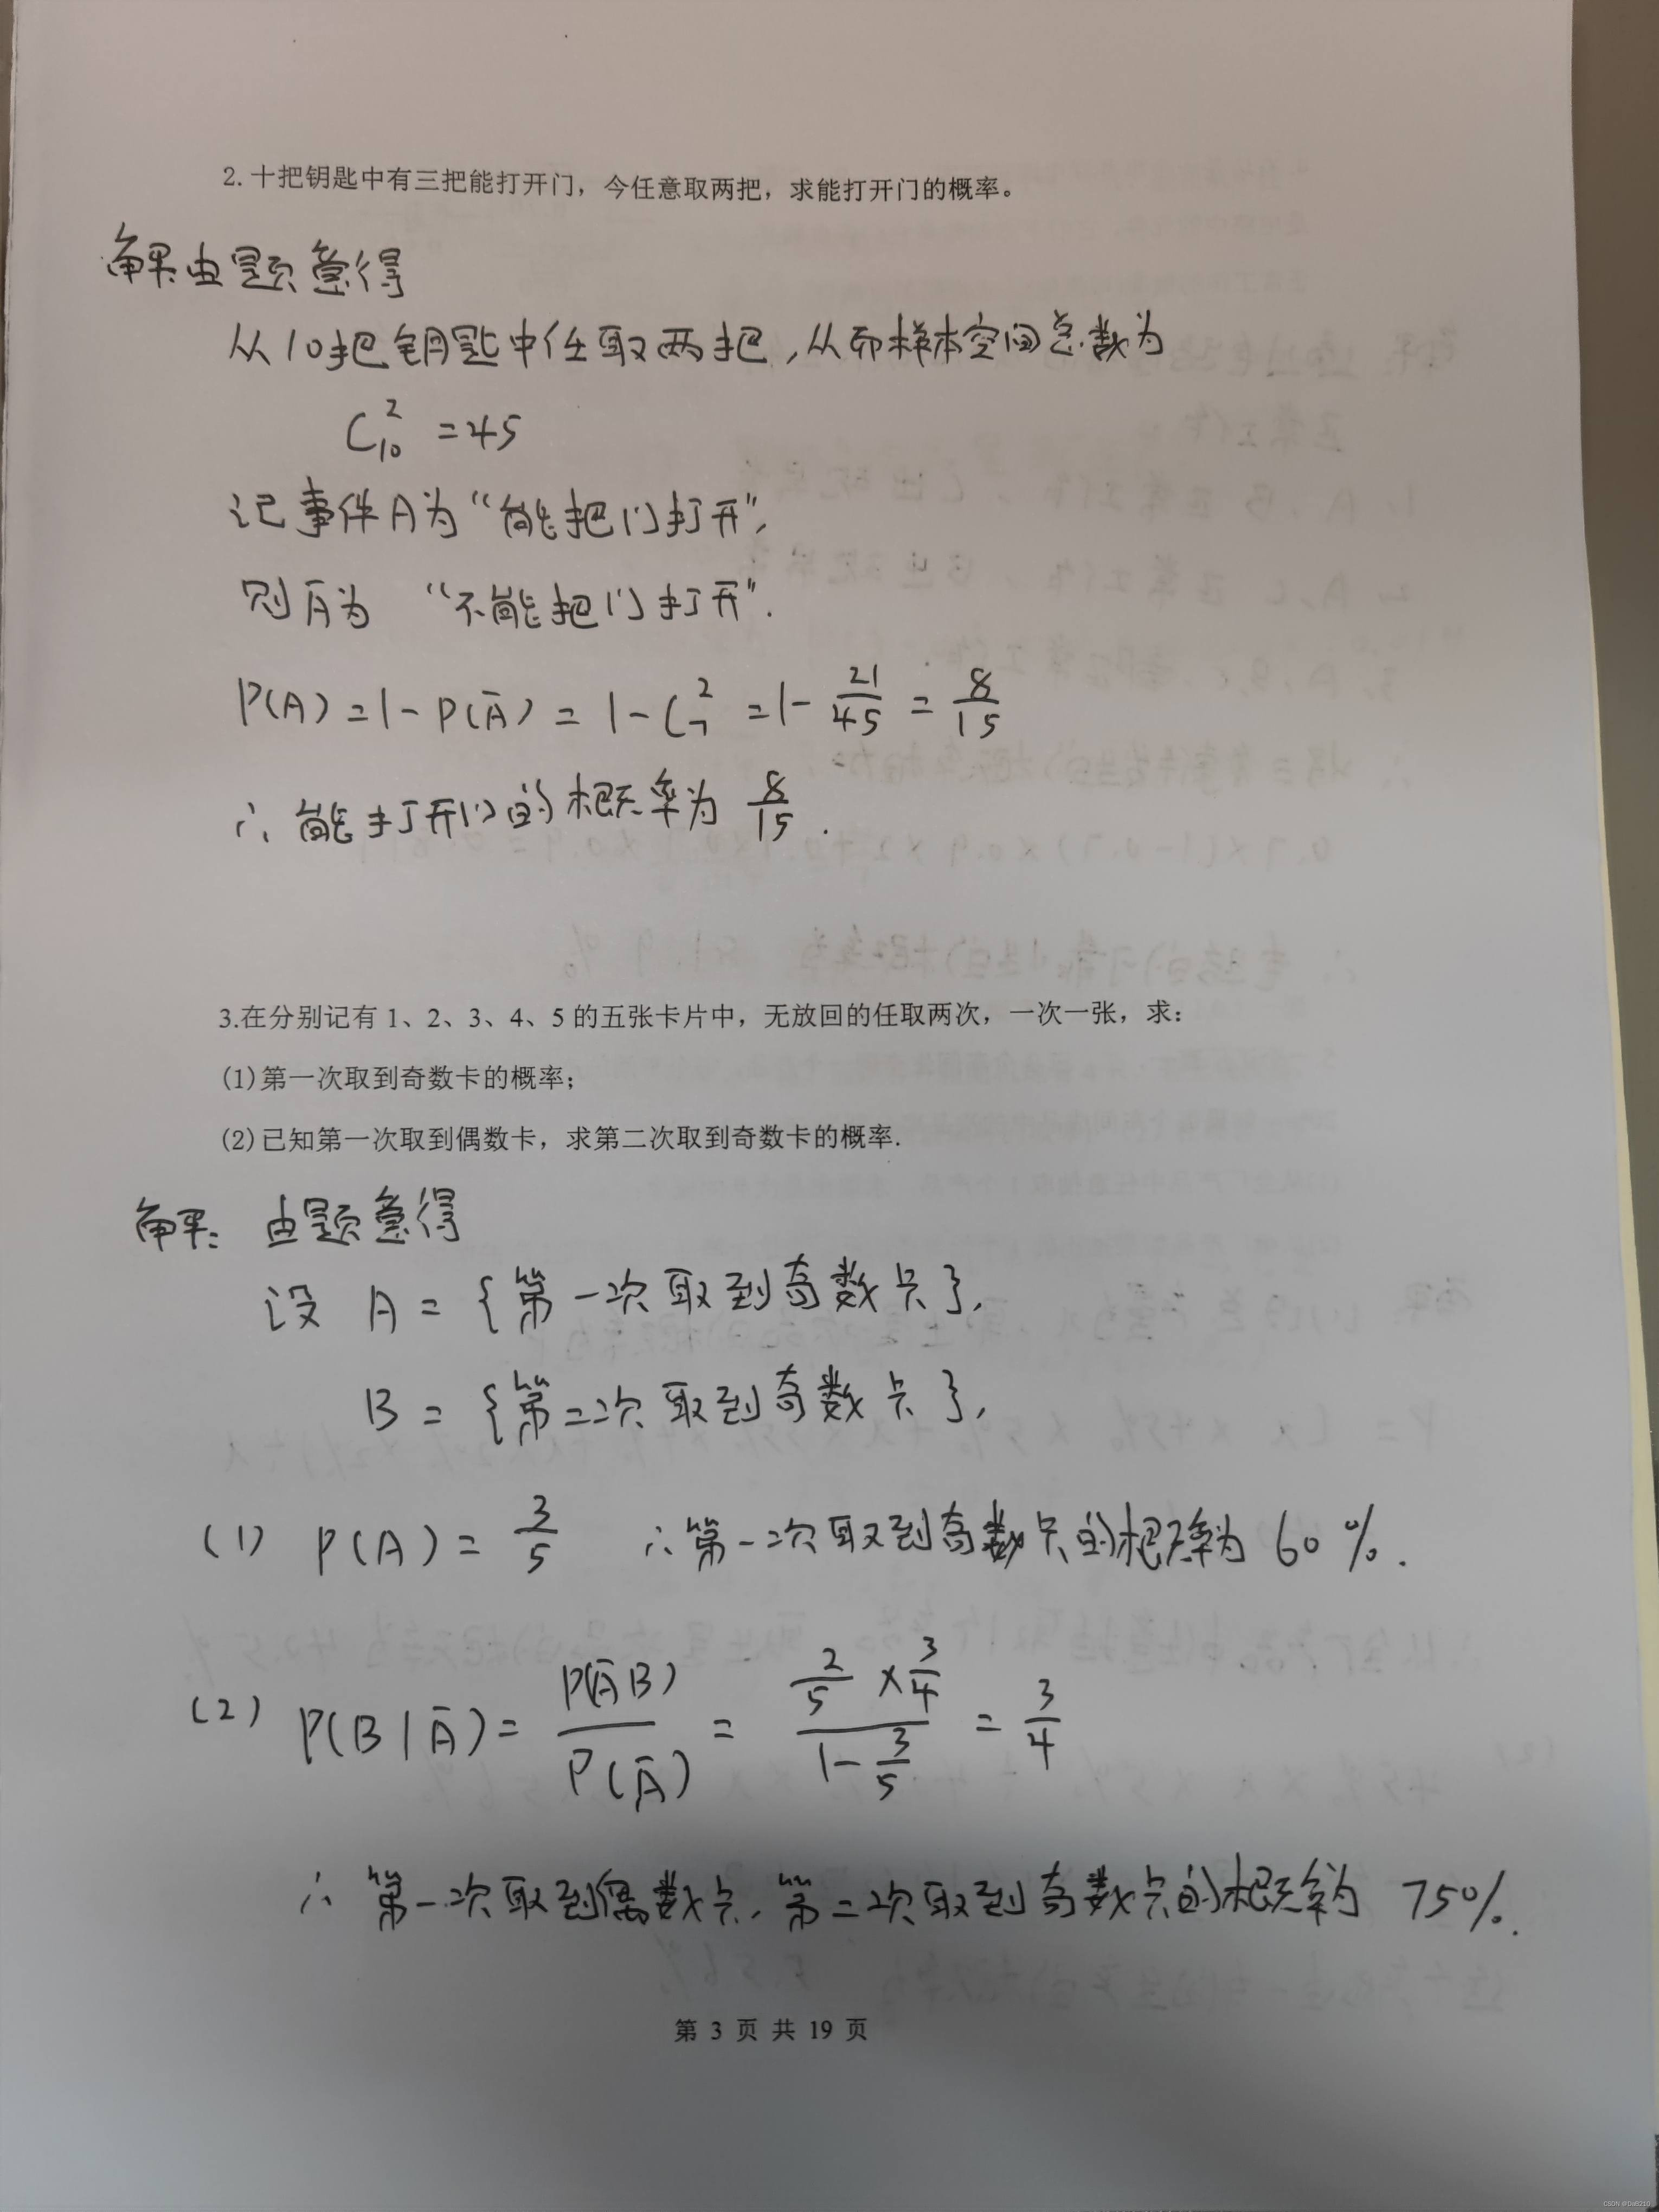 2. 十把钥匙中有三把能打开门，今任意取两把，求能打开门的概率。
解：由题意得
从10把钥匙中任取两把，从而样本空间总数为
C₁₀² =45
记事件A为“能把门打开”，
则Ā为 “不能把门打开”.
P(A)=1-P(Ā) = 1-C₇² =1- 21/45 = 8/15
∴ 能打开门的概率为 8/15 .
3.在分别记有 1、2、3、4、5 的五张卡片中，无放回的任取两次，一次一张，求：
(1)第一次取到奇数卡的概率；
(2)已知第一次取到偶数卡，求第二次取到奇数卡的概率.
解： 由题意得
设 A = {第一次取到奇数卡}，
B = {第二次取到奇数卡}，
(1) P(A) = 3/5 ∴第一次取到奇数卡的概率为 60%.
(2) P(B|Ā) = P(ĀB)/P(Ā) = (2/5 × 3/4)/(1-3/5) = 3/4
∴ 第一次取到偶数卡，第二次取到奇数卡的概率为 75%.
第 3 页 共 19 页
CSDN @DuB210